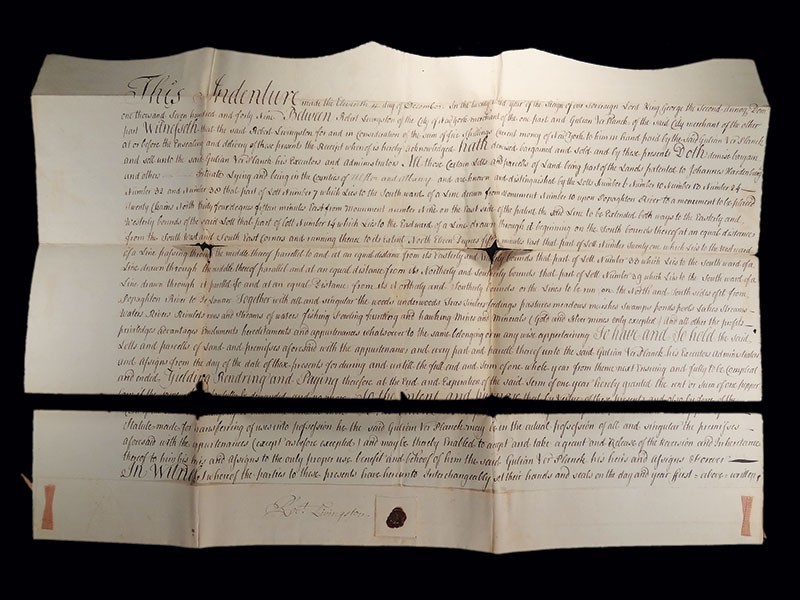 This Indenture made the Eleventh day of December In the twenty third year of the Reign of our Sovereign Lord King George the Second annoq Dom
one thousand Seven hundred and forty Nine Between Robert Livingston of the City of New york merchant of the one part and Gulian Ver Planck of the said City merchant of the other
part Witnesseth that the said Robert Livingston for and in Consideration of the sum of five Shillings Current money of New York to him in hand paid by the said Gulian Ver Planck
at or before the Ensealing and delivery of these presents the Receipt whereof is hereby acknowledged hath demised bargained and sold and by these presents Doth demise bargain
and sell unto the said Gulian Ver Planck his Executors and administrators All those Certain Lotts and parcells of Land being part of the Lands patented to Johannes Hardenbergh
and others Scituate Lying and being in the Counties of Ulster and Albany and are known and distinguished by the Lotts Number Number 13 Number 24
Number 32 and Number 39 that part of Lott Number 7 which Lies to the Southward of a Line drawn from Monument Number 10 upon Popaghton River to a monument to be placed
twenty Chains North thirty four degrees fifteen minutes East from Monument Number Nine on the East side of the patent, the said Line to be Extended both ways to the Easterly and
Westerly bounds of the said Lott that part of Lott Number 14 which Lies to the Eastward of a Line drawn through it beginning on the South bounds thereof at an equal distance
from the South West and South East Corners and running thence to North Eleven Degrees fifteen minutes East that part of Lott Number twenty one which Lies to the Westward
of a Line passing through the middle thereof parrallel to and at an equal distance from its Easterly and bounds that part of Lott Number 33 which Lies to the Southward of a
Line drawn through the middle thereof parallel and at an equal distance from its Northerly and Southerly bounds that part of Lott Number 39 which Lies to the Southward of a
Line drawn through it parallel to and at an Equal Distance from its Northerly and Southerly bounds or the Lines to be run on the North and South sides of it from
Popaghton River to Delaware Together with all and singular the woods underwoods trees timber feedings pastures meadows marshes Swamps ponds pools Lakes Streams
Waters Rivers Rivulets runs and Streams of waters fishing fowling hunting and hawking Mines and Minerals (Gold and Silver mines only excepted) and all other the profits
priviledges advantages Emoluments hereditaments and appurtenances whatsoever to the same belonging or in any wise appertaining To have and To hold the said
Lotts and parcells of Land and premises aforesaid with the appurtenances and every part and parcell thereof unto the said Gulian Ver Planck his Executors Administrators
and Assigns from the day of the date of these presents for during and untill the full end and term of one whole year from thence next Ensuing and fully to be Compleat
and ended Yielding Rendring and Paying therefore at the End and Expiration of the said Term of one year hereby granted the rent or Sum of one pepper
To the Intent and
Statute made for transferring of uses into possession he the said Gulian Ver Planck may be in the actual possession of all and singular the premises
aforesaid with the appurtenances (except as before excepted) and may thereby be enabled to accept and take a grant and Release of the Reversion and Inheritance
thereof to him his heirs and assigns to the only proper use benefit and behoof of him the said Gulian Ver Planck his heirs and assigns forever
In Witness whereof the parties to these presents have hereunto Interchangeably set their hands and seals on the day and year first above written
Robt. Livingston